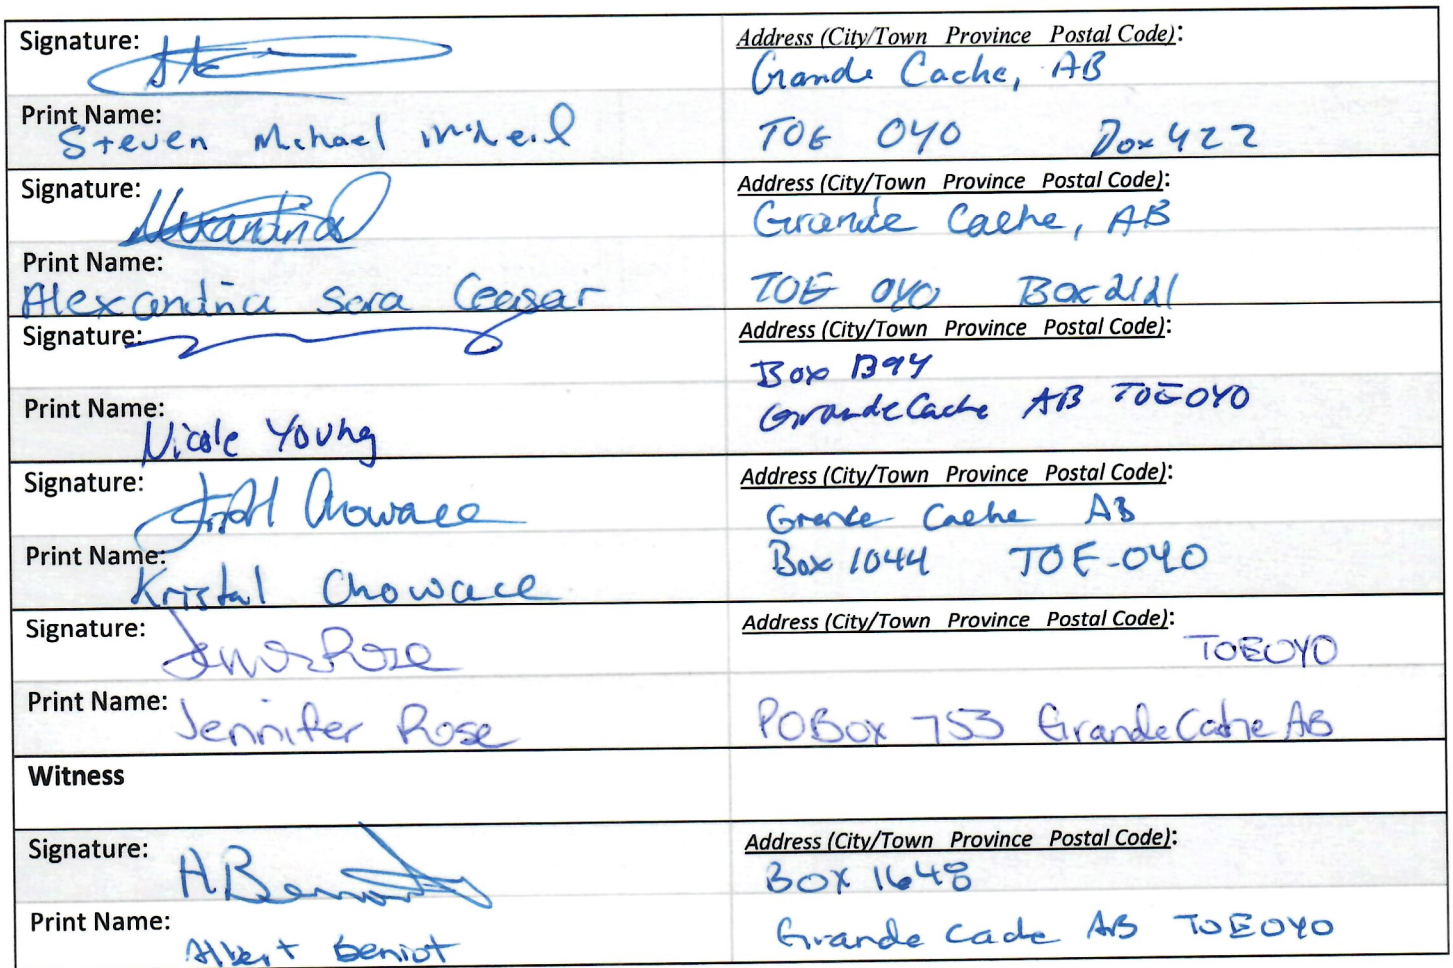 Signature: Address (City/Town Province Postal Code):
Grande Cache, AB
Print Name:
Steven Michael McNeil TOE OYO Box 422
Signature: Alexandria Address (City/Town Province Postal Code):
Grande Cache, AB
Print Name:
Alexandria Sara Ceasar TOE OYO Box
Signature: Address (City/Town Province Postal Code):
Box 1394
Print Name: Grande Cache AB TOEOYO
Nicole Young
Signature: Address (City/Town Province Postal Code):
Chowace Grande Cache AB
Print Name: Box 1044 TOE-OYO
Kristal Chowace
Signature: Address (City/Town Province Postal Code):
Rose TOEOYO
Print Name:
Jennifer Rose PO Box 753 Grande Cache AB
Witness
Signature: Address (City/Town Province Postal Code):
A Benoit Box 1648
Print Name:
Albert Beniot Grande Cache AB TOEOYO